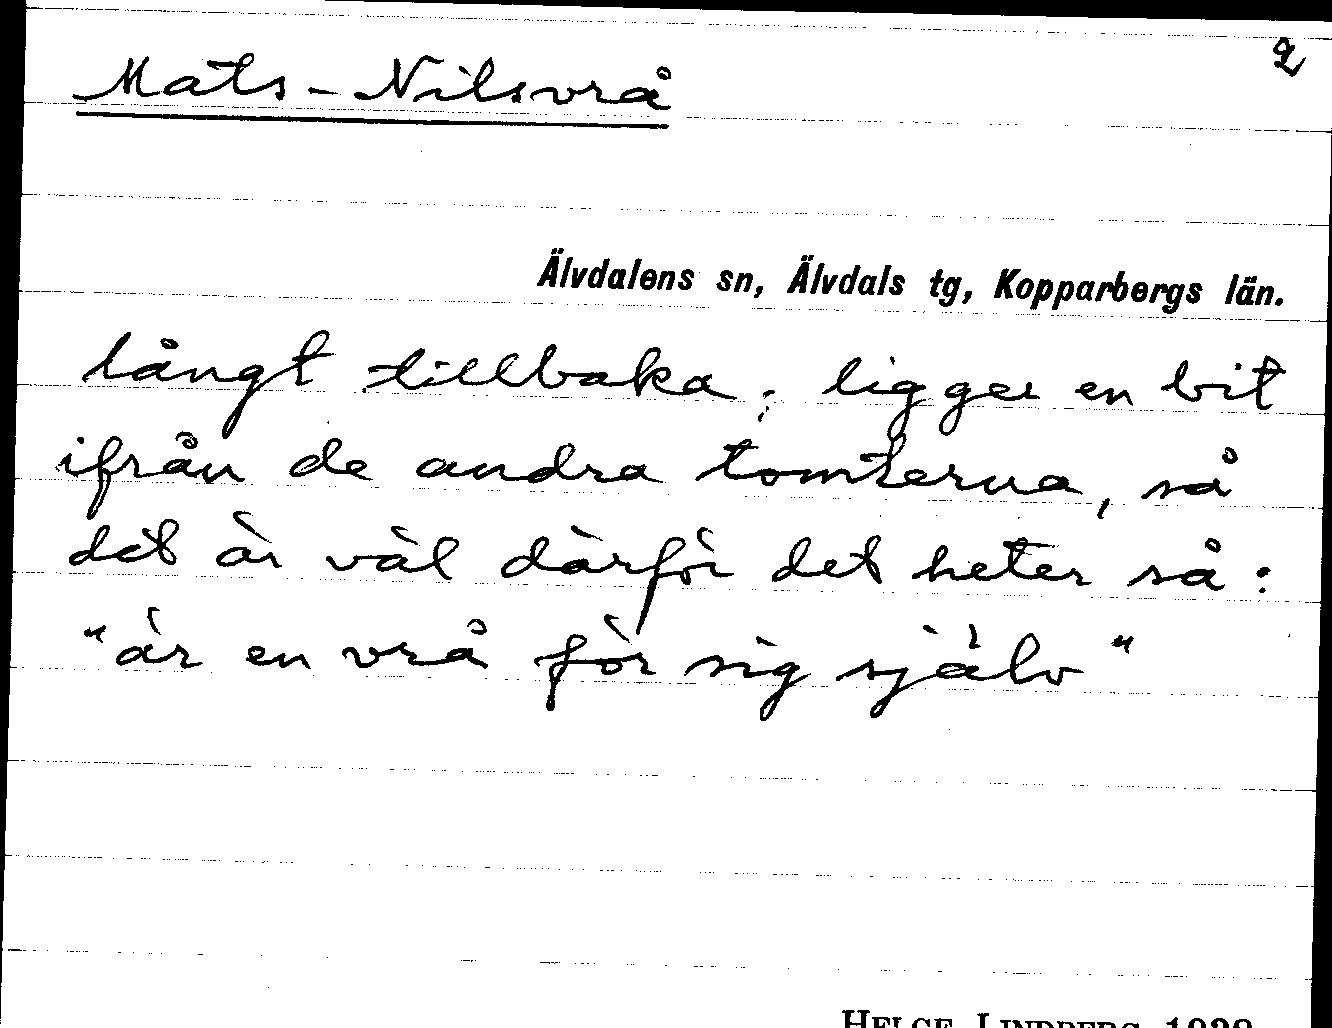 2
Mats-Nilsvrå
Älvdalens sn, Älvdals tg, Kopparbergs län.
långt tillbaka; ligger en bit
ifrån de andra tomterna, så
det är väl därför det heter så:
"är en vrå för sig själv"
HELGE LINDBERG